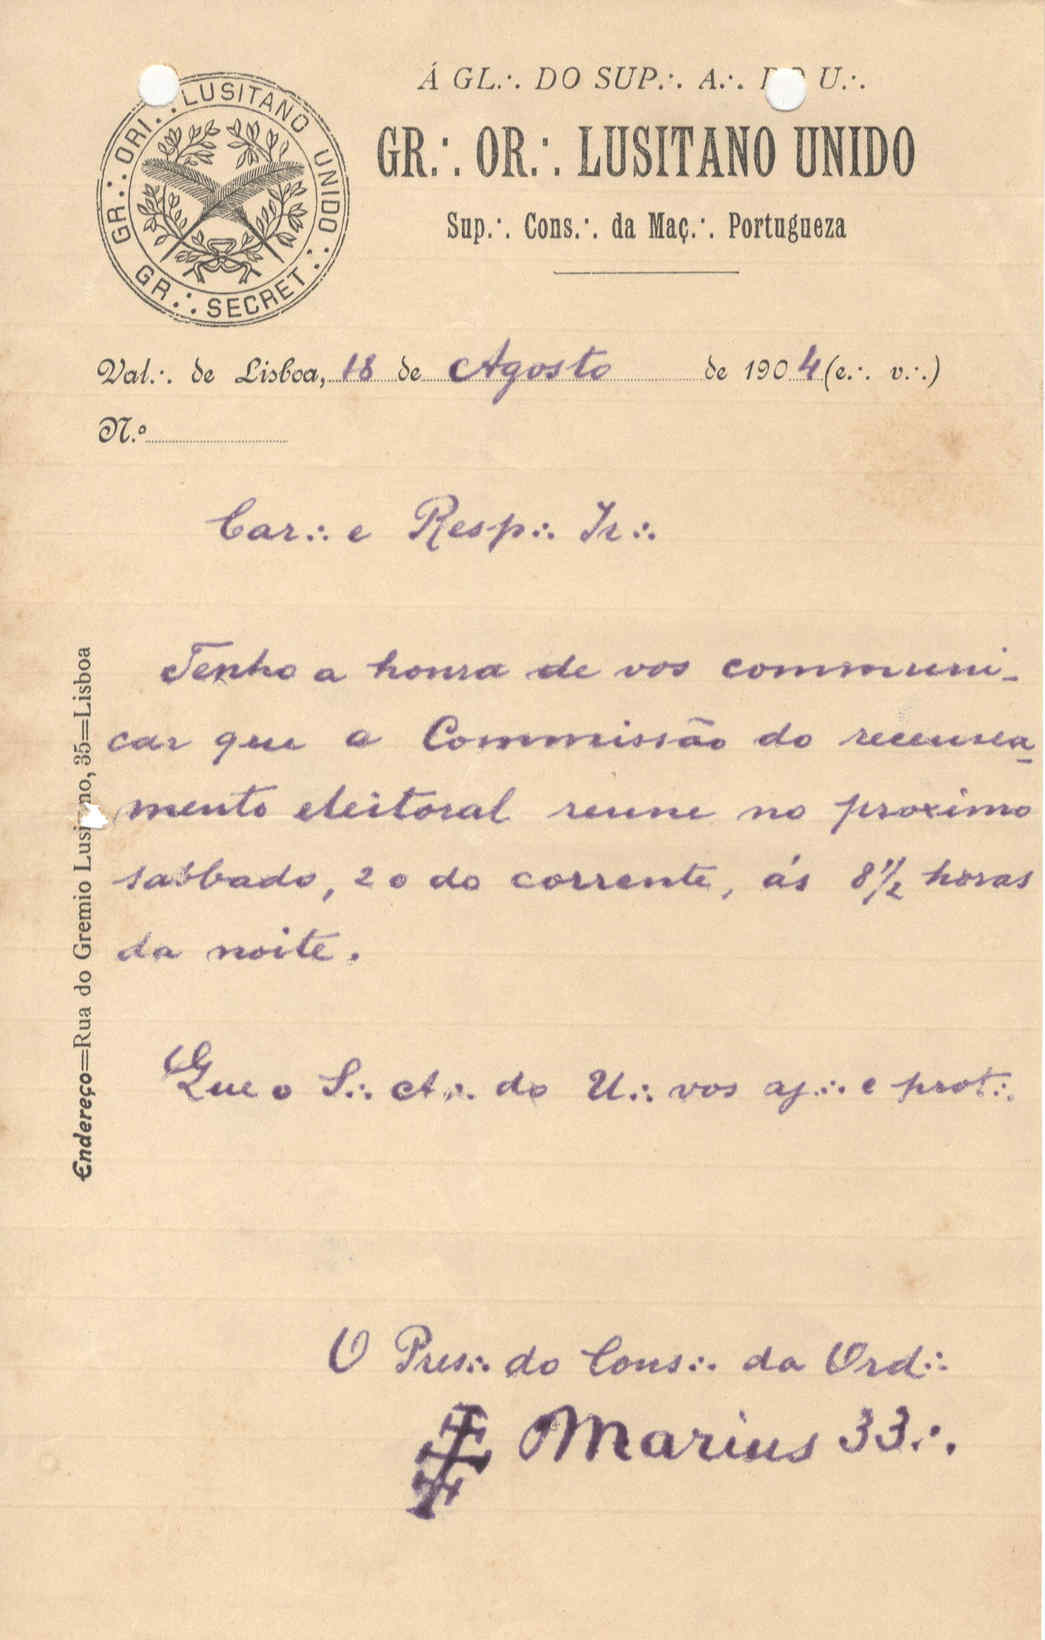 Á GL.·. DO SUP.·. A.·. DO U.·.
GR.·. ORI.·. LUSITANO UNIDO.·.
GR.·. SECRET.·.
GR.·. OR.·. LUSITANO UNIDO
Sup.·. Cons.·. da Maç.·. Portugueza
Val.·. de Lisboa, 18 de Agosto de 1904 (e.·. v.·.)
N.º
Car.·. e Resp.·. Ir.·.
Tenho a honra de vos communi-
car que a Commissão do recensea-
mento eleitoral reune no proximo
sabbado, 20 do corrente, ás 8 1/2 horas
da noite.
Que o S.·. A.·. do U.·. vos aj.·. e prot.·.
O Pres.·. do Cons.·. da Ord.·.
Marius 33.·.
Endereço=Rua do Gremio Lusitano, 35=Lisboa